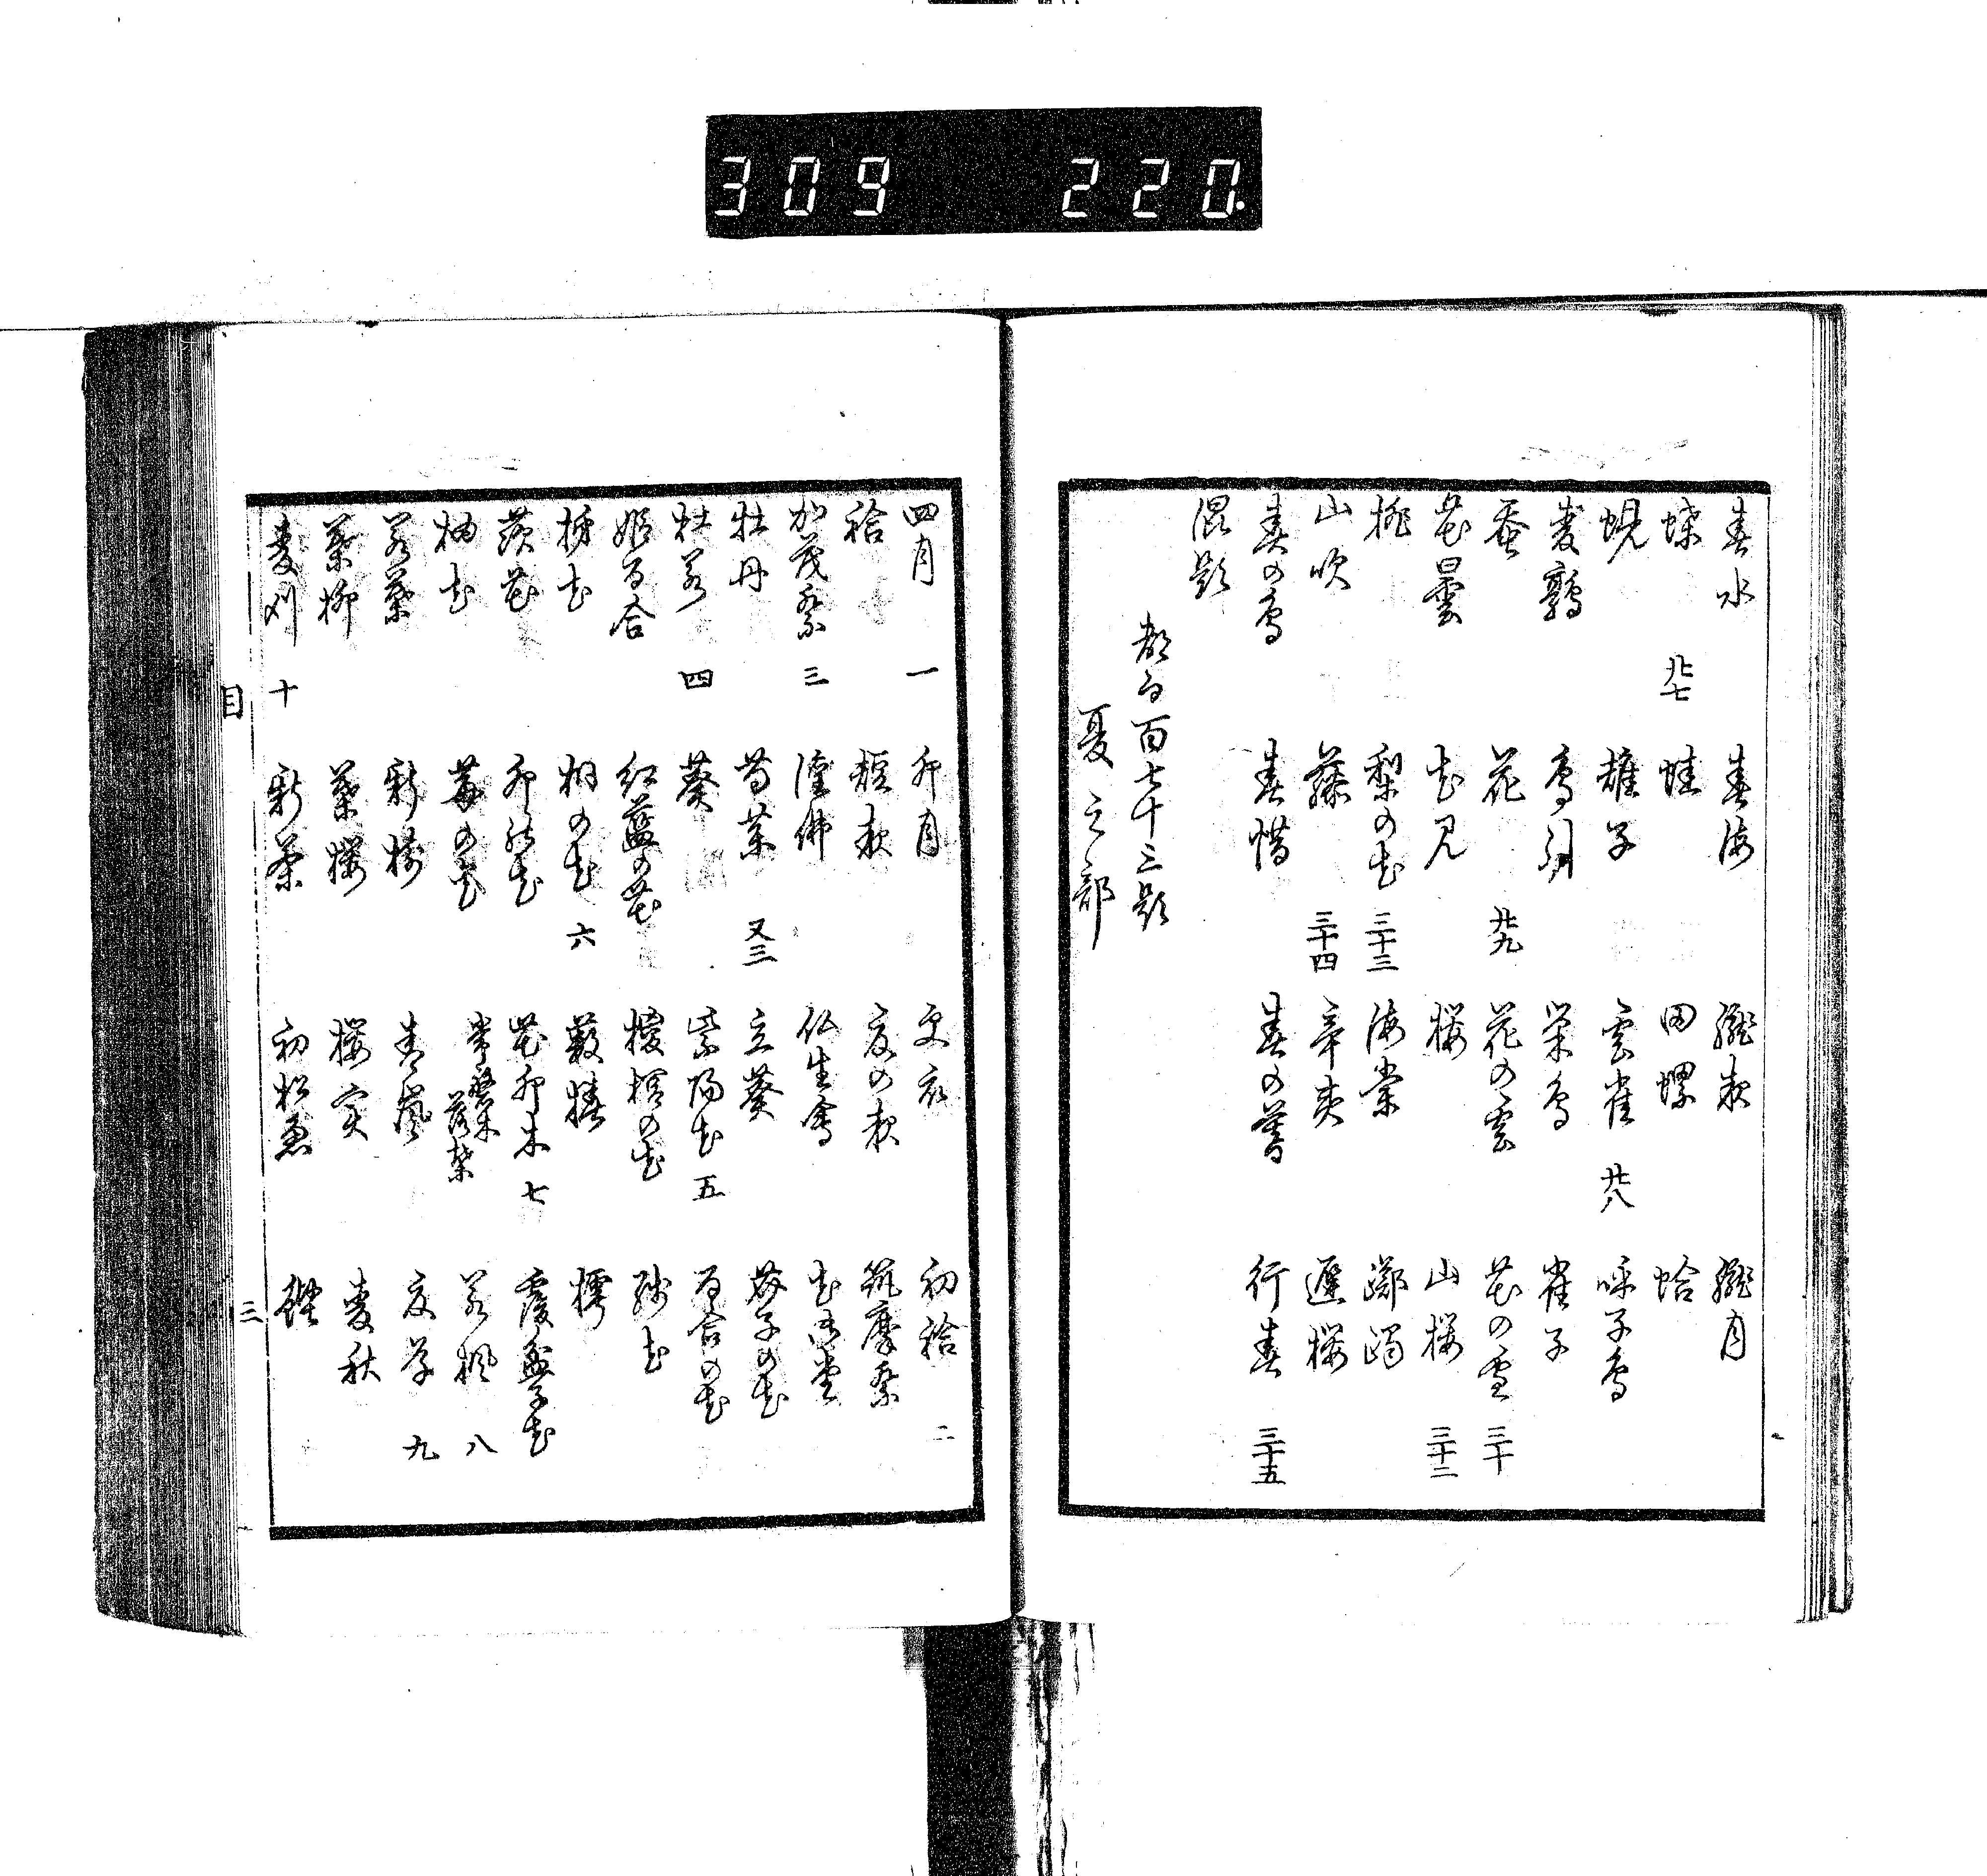 309 220.
春水 春海 朧夜 朧月
蝶 廿七 蛙 田螺 蛤
蜆 雉子 雲雀 廿八 呼子鳥
麦鶉 鳥引 巣鳥 雀子
蚕 花 廿九 花の雲 花の雪 三十
花曇 花見 桜 山桜 三十二
桃 梨の花 三十三 海棠 躑躅
山吹 藤 三十四 辛夷 遅桜
春の鳥 春惜 春の暮 行春 三十五
混題
都合百七十三題
夏之部
四月 一 卯月 更衣 初袷 二
袷 短夜 夏の夜 筑摩祭
加茂祭 三 灌佛 仏生會 花御堂
牡丹 芍薬 又三 立葵 芥子の花
杜若 四 葵 紫陽花 五 百合の花
姫百合 紅藍の花 榎樒の花
桐の花 六
茨花 卯の花 花卯木 七 覆盆子花
柚花 常磐木落葉 若楓 八
若葉 新樹 青嵐 夏草 九
葉柳 葉桜 桜実 麦秋
麦刈 十 新茶 初松魚
目 三